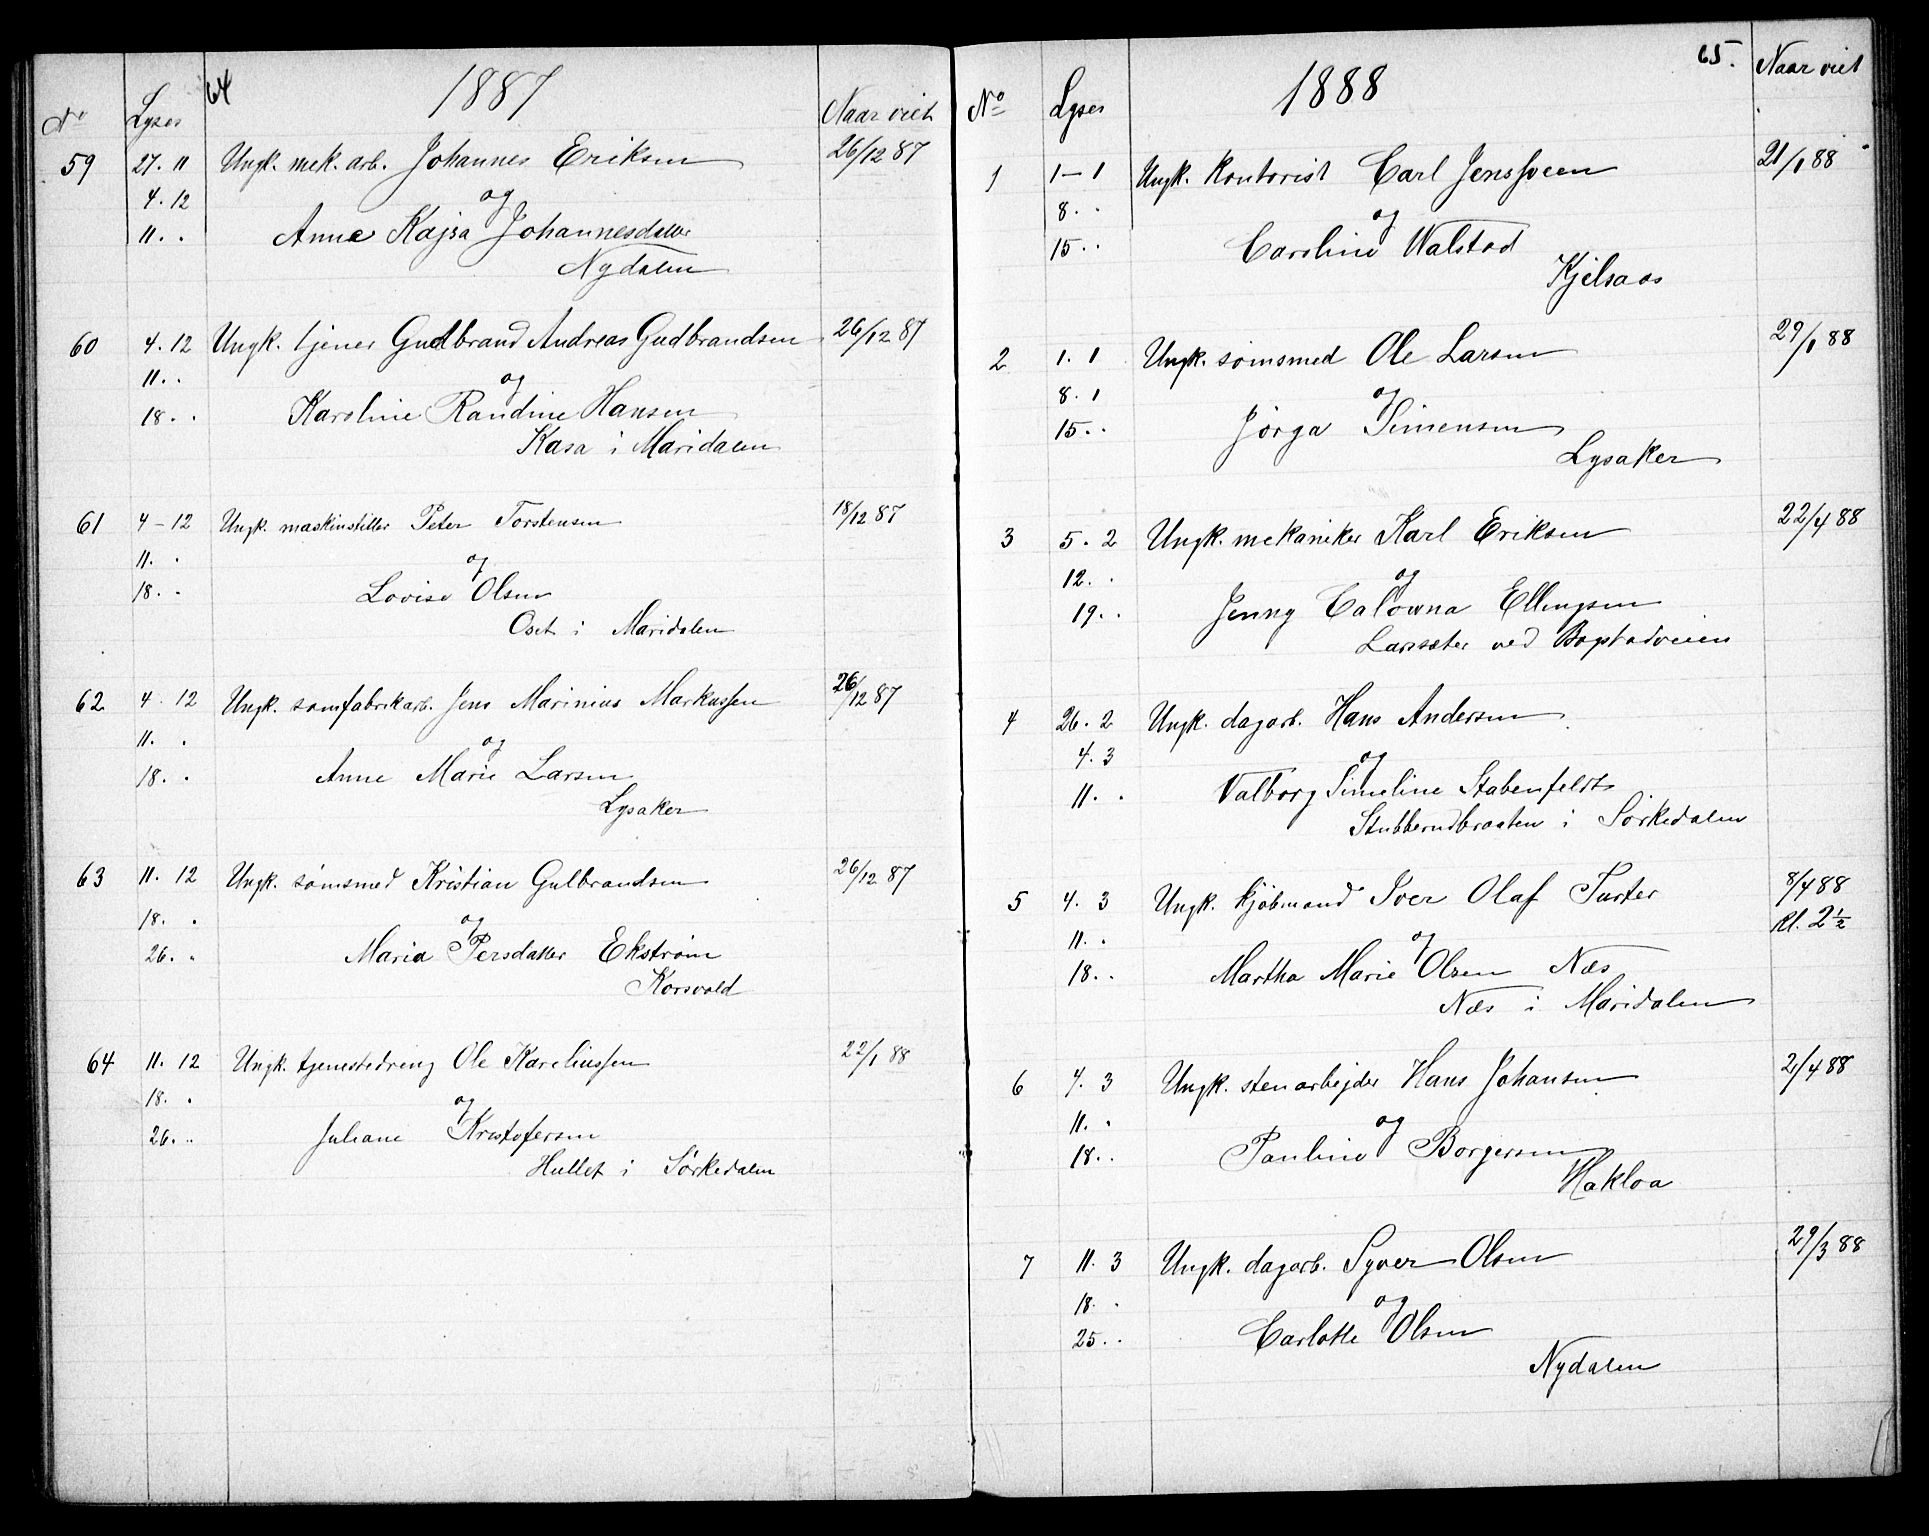 64
1887
No Lyses Naar viet
59 27. 11 Ungk. mek. arb. Johannes Eriksen 26/12 87
4. 12 og
11. . Anne Kajsa Johannesdatter
Nydalen
60 4. 12 Ungk. tjener Gudbrand Andreas Gudbrandsen 26/12 87
11. . og
18. . Karoline Randine Hansen
Kasa i Maridalen
61 4-12 Ungk. maskinstiller Peter Torstensen 18/12 87
11. . og
18. . Lovise Olsen
Oset i Maridalen
62 4. 12 Ungk. sømfabrikarb. Jens Marinius Markussen 26/12 87
11. . og
18. . Anne Marie Larsen
Lysaker
63 11. 12 Ungk. sømsmed Kristian Gulbrandsen 26/12 87
18. . og
26. . Maria Persdatter Ekstrøm
Korsvold
64 11. 12 Ungk. tjenestedreng Ole Kareliussen 22/1 88
18. . og
26. . Juliane Kristofersen
Hullet i Sørkedalen
65.
1888
No Lyses Naar viet
1 1-1 Ungk. Kontorist Carl Jenssveen 21/1 88
8. . og
15. . Caroline Walstad
Kjelsaas
2 1. 1 Ungk. sømsmed Ole Larsen 29/1 88
8. 1 og
15. . Jørga Simensen
Lysaker
3 5. 2 Ungk. mekaniker Karl Eriksen 22/4 88
12. . og
19. . Jenny Ellingsen
ved Bogstadveien
4 26. 2 Ungk. dagarb. Hans Andersen
4. 3 og
11. . Valborg Simeline Stabenfeldt
Stubberudbraaten i Sørkedalen
5 4. 3 Ungk. kjøbmand Iver Olaf Furter 8/4 88
11. . og Kl. 2 1/2
18. . Martha Marie Olsen Næs
Næs i Maridalen
6 4. 3 Ungk. stenarbejder Hans Johansen 2/4 88
11. . og
18. . Pauline Borgersen
Hakloa
7 11. 3 Ungk. dagarb. Syver Olsen 29/3 88
18. . og
25. . Carlotte Olsen
Nydalen